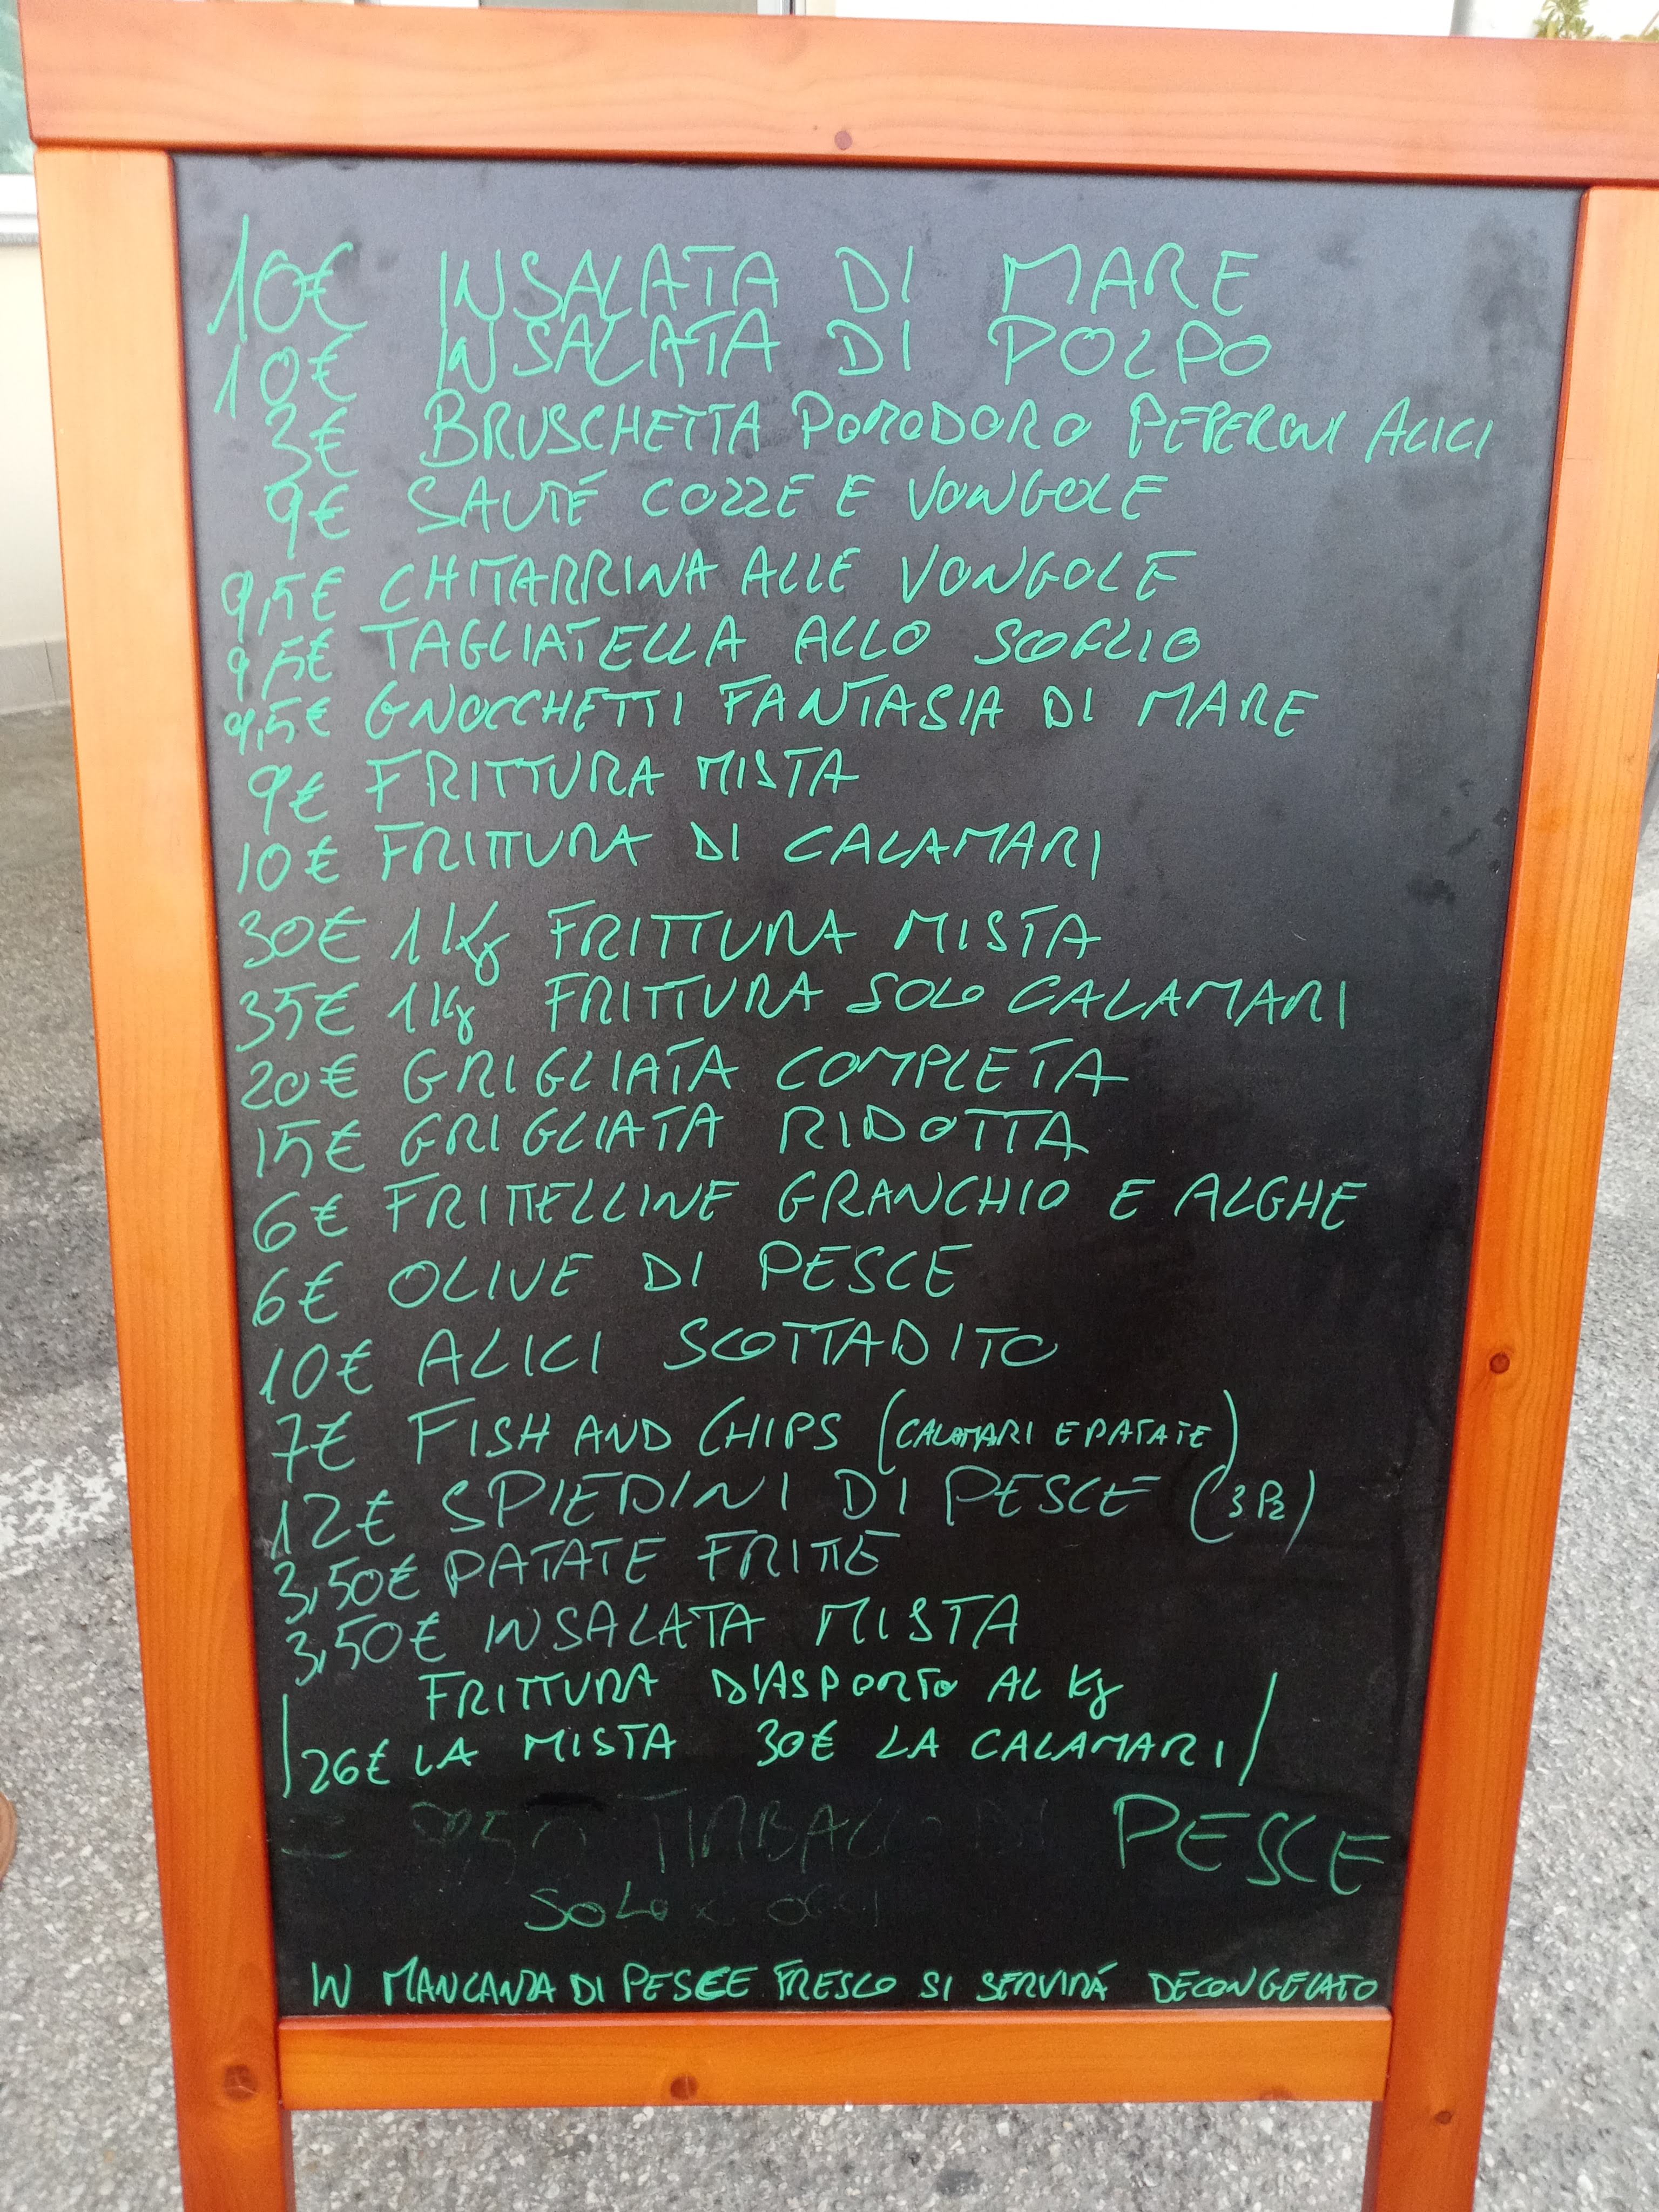 10€ INSALATA DI MARE
10€ INSALATA DI POLPO
3€ BRUSCHETTA POMODORO PEPERONI ALICI
9€ SAUTÉ COZZE E VONGOLE
9,5€ CHITARRINA ALLE VONGOLE
9,5€ TAGLIATELLA ALLO SCOGLIO
9,5€ GNOCCHETTI FANTASIA DI MARE
9€ FRITTURA MISTA
10€ FRITTURA DI CALAMARI
30€ 1Kg FRITTURA MISTA
35€ 1Kg FRITTURA SOLO CALAMARI
20€ GRIGLIATA COMPLETA
15€ GRIGLIATA RIDOTTA
6€ FRITTELLINE GRANCHIO E ALGHE
6€ OLIVE DI PESCE
10€ ALICI SCOTTADITO
7€ FISH AND CHIPS (CALAMARI E PATATE)
12€ SPIEDINI DI PESCE (3 PZ)
3,50€ PATATE FRITTE
3,50€ INSALATA MISTA
FRITTURA D'ASPORTO AL Kg
26€ LA MISTA 30€ LA CALAMARI
TIMBALLO DI PESCE
SOLO x OGGI
IN MANCANZA DI PESCE FRESCO SI SERVIRÁ DECONGELATO